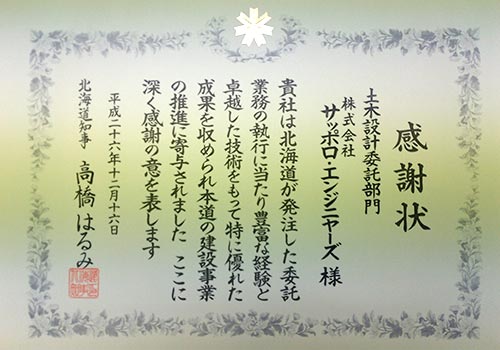 感謝状
土木設計委託部門
株式会社
サッポロ・エンジニヤーズ 様
貴社は北海道が発注した委託
業務の執行に当たり豊富な経験と
卓越した技術をもって特に優れた
成果を収められ本道の建設事業
の推進に寄与されました ここに
深く感謝の意を表します
平成二十六年十二月十六日
北海道知事 高橋はるみ